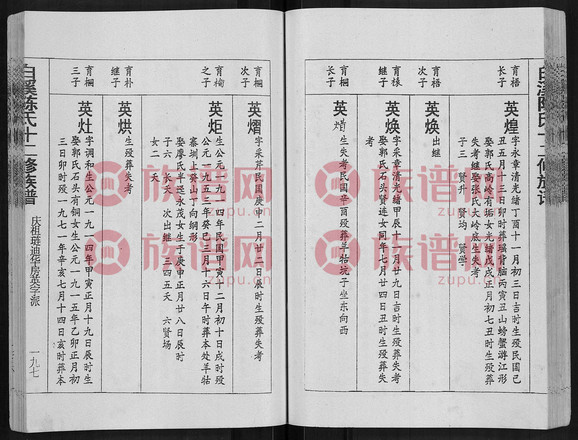 白溪陈氏十二修族谱
育梧
长子
英煌
字永章清光绪丁酉十一月初三日吉时生殁民国己
丑五月十三日卯时葬
娶郭氏高岭有姤女光绪戊戌正月初七丑时生殁葬
失考继娶张氏大岭底生殁失考
子三 贤升 贤均 贤学
育梧
次子
英焕
出继
育榱
继子
英焕
字采章清光绪甲辰十一月廿九日吉时生殁葬失考
娶郭氏石头贤连女同年七月廿四日丑时生殁葬失
考
育榈
长子
英
生失考民国辛酉殁葬羊牯坑子坐东向西
育榈
次子
英熠
字采芹民国庚申二月廿二日辰时生殁葬失考
育榆
之子
英炬
公元一九一四年民国甲寅十二月初十日戌时殁
公元一九五三年癸巳三月十六日午时葬本处羊牯
寨圳上癸山丁向纲形
娶廖氏半迳永茂女生于庚申正月廿八日辰时
子六 长夭 次出继 三四五夭 六贤场
女二夭
育朴
继子
英烘
生殁葬失考
育榈
三子
英灶
字调和生公元一九一四年甲寅正月十九日辰时生
娶郭氏石头有铜女生公元一九一五年乙卯正月初
三日卯时殁一九七一年辛亥七月十四日亥时葬本
白溪陈氏十二修族谱
庆祖琏迪华房英字派
一九七
族谱网
zupu.cn